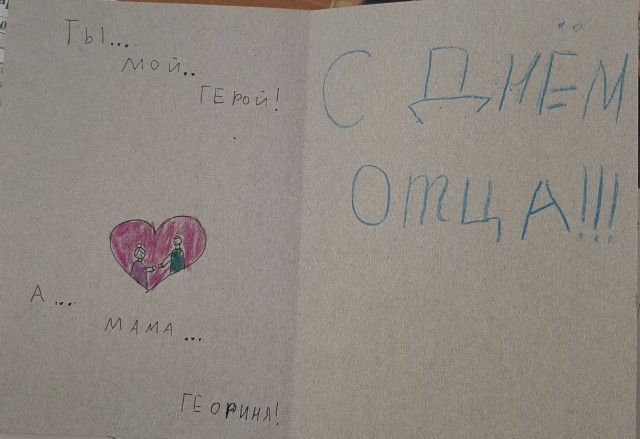 Ты...
мой..
герой!
А...
мама...
геориня!
С ДНЁМ
ОТЦА!!!